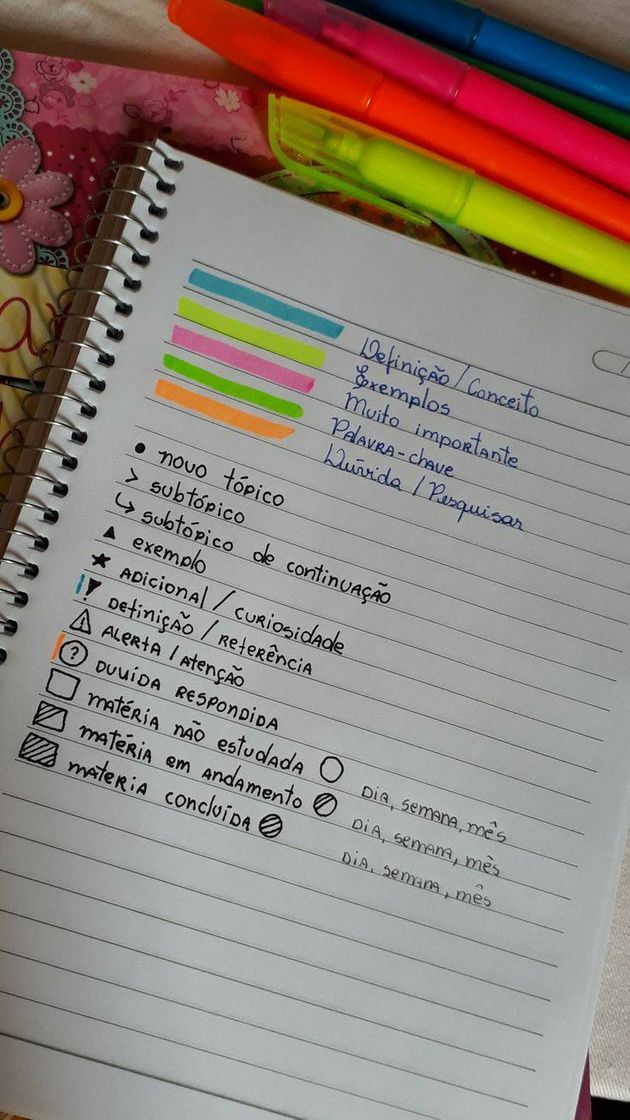 Definição / Conceito
Exemplos
Muito importante
Palavra-chave
Dúvida / Pesquisar
• novo tópico
> subtópico
↳ subtópico de continuação
▲ exemplo
★ Adicional / curiosidade
Definição / referência
⚠ Alerta / Atenção
? Duvída respondida
matéria não estudada
Dia, semana, mês
matéria em andamento
Dia, semana, mês
materia concluída
Dia, semana, mês